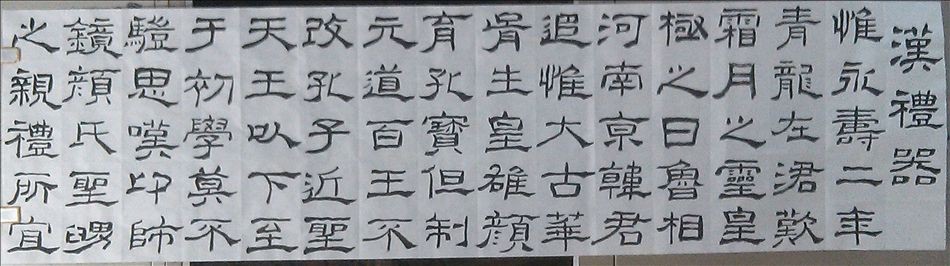 漢禮器
惟永壽二年
青龍在涒歎
霜月之靈皇
極之日魯相
河南京韓君
追惟大古華
胥生皇雄顏
育孔寶但制
元道百王不
改孔子近聖
天王以下至
于初學莫不
驥思嘆卬師
鏡顏氏聖舅
之親禮所宜